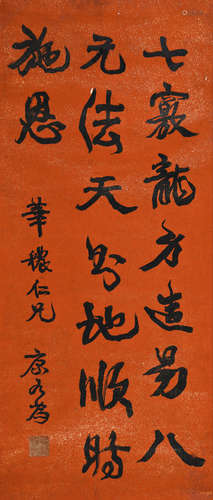 七竅龍身造易八
元法天則地順時
施恩
華穠仁兄 康有為